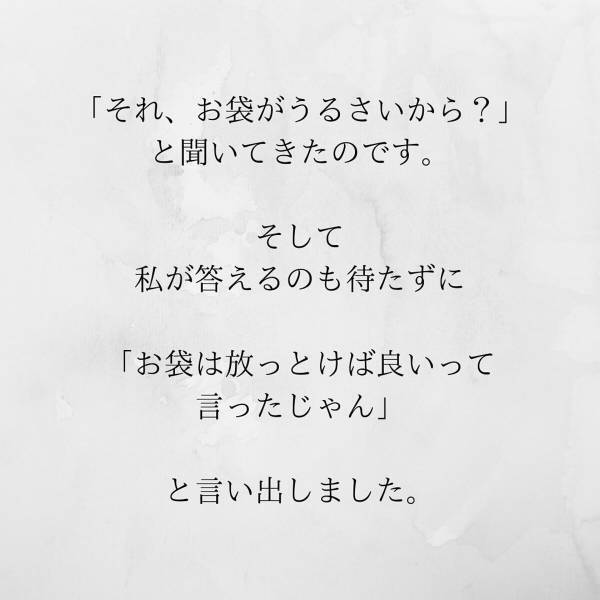 「それ、お袋がうるさいから？」
と聞いてきたのです。
そして
私が答えるのも待たずに
「お袋は放っとけば良いって
言ったじゃん」
と言い出しました。